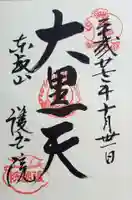 平成廿七年十月廿一日
大黒天
東叡山
護国院